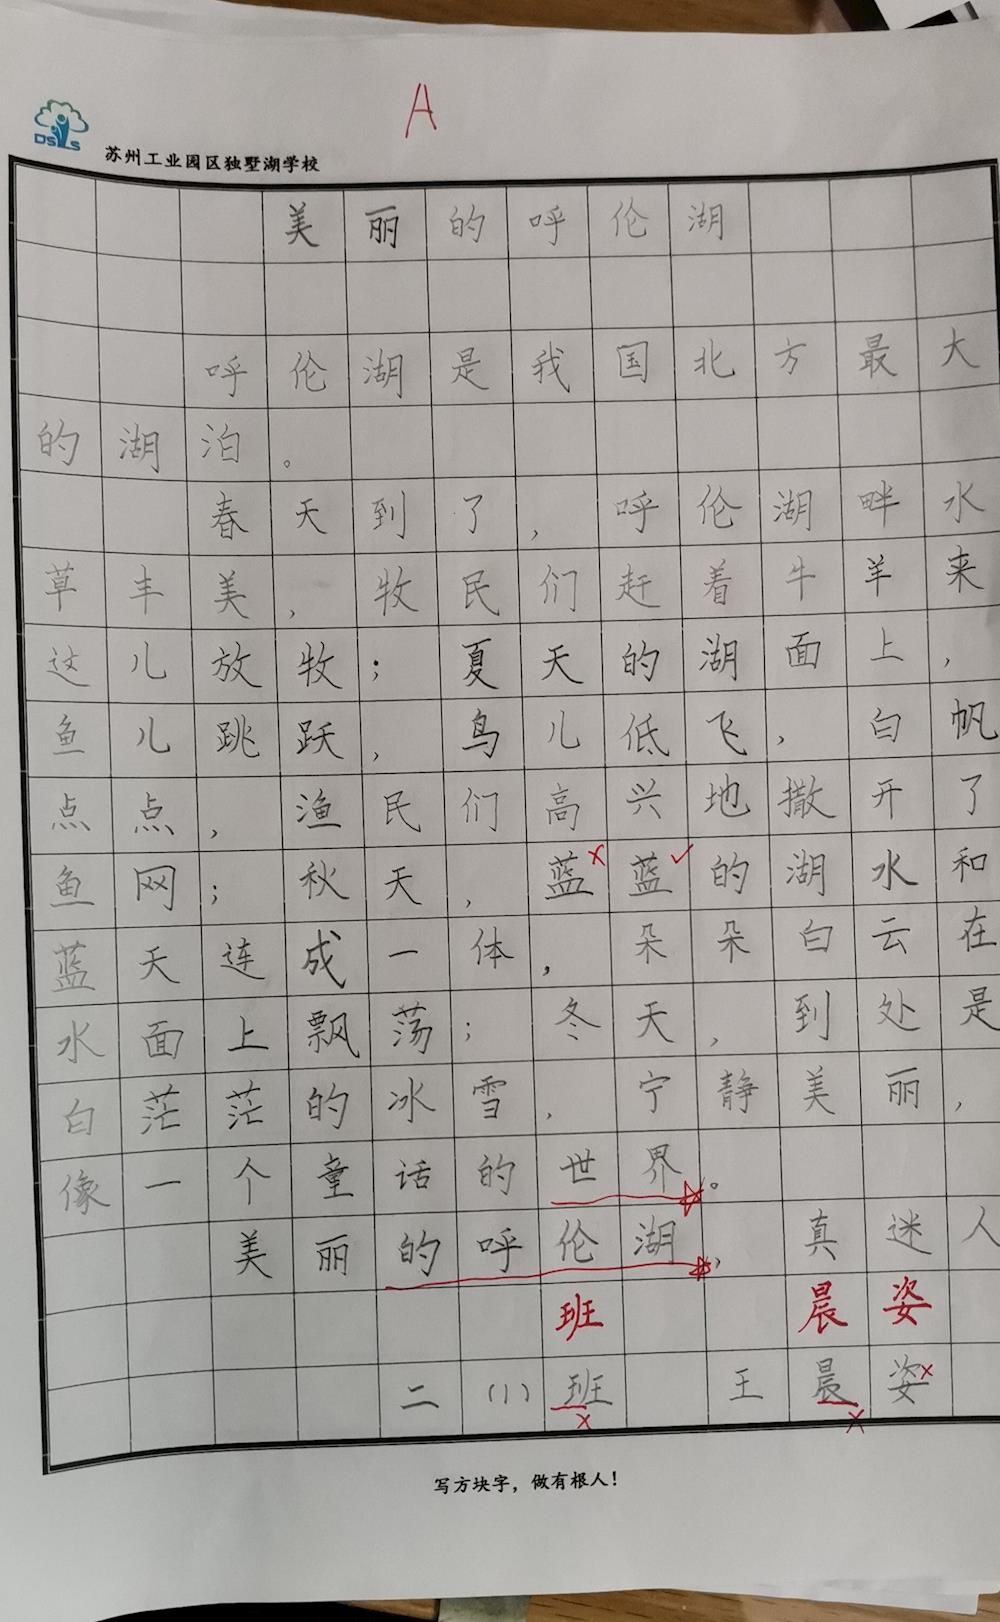 A
DSLS
苏州工业园区独墅湖学校
美丽的呼伦湖
呼伦湖是我国北方最大
的湖泊。
春天到了,呼伦湖畔水
草丰美,牧民们赶着牛羊来
这儿放牧;夏天的湖面上,
鱼儿跳跃,鸟儿低飞,白帆
点点,渔民们高兴地撒开了
鱼网;秋天,蓝蓝的湖水和
蓝天连成一体,朵朵白云在
水面上飘荡;冬天,到处是
白茫茫的冰雪,宁静美丽,
像一个童话的世界。
美丽的呼伦湖,真迷人
班 晨姿
二(1)班 王晨姿
写方块字,做有根人!